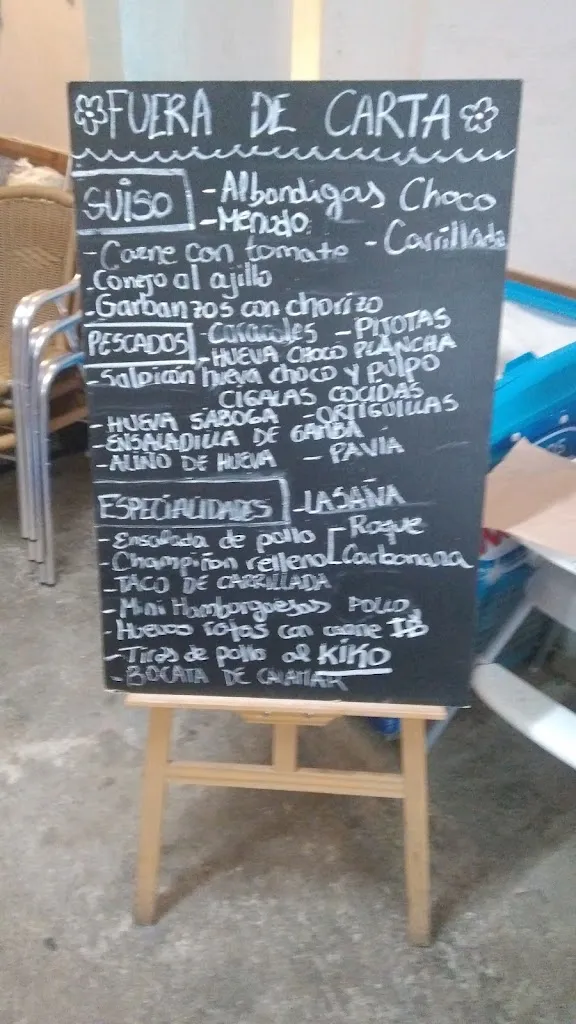 FUERA DE CARTA
GUISO - Albondigas Choco
- Menudo
- Carne con tomate - Carrillada
- Conejo al ajillo
- Garbanzos con chorizo
PESCADOS - Caracoles - PIJOTAS
- HUEVA CHOCO PLANCHA
- Salpicón hueva choco y pulpo
CIGALAS COCIDAS
- HUEVA SABOGA - ORTIGUILLAS
- ENSALADILLA DE GAMBA
- ALIÑO DE HUEVA - PAVIA
ESPECIALIDADES - LASAÑA
- Ensalada de pollo - Roque
- Champiñon relleno - Carbonara
- TACO DE CARRILLADA
- Mini Hamborguesas POLLO
- Huevos rotos con carne IB
- Tiras de pollo al KIKO
- BOCATA DE CALAMAR